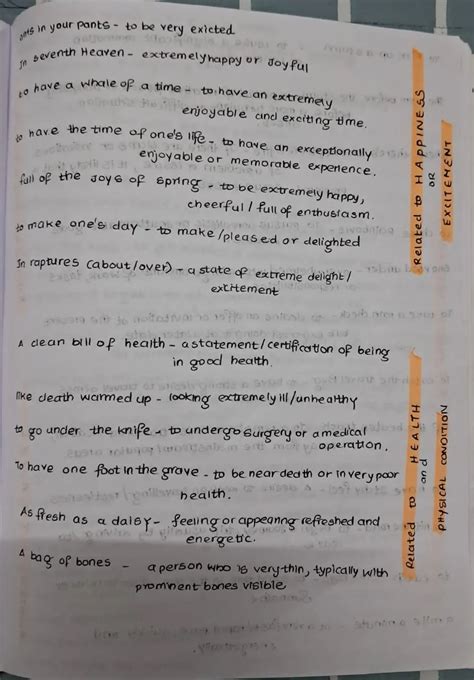 ants in your pants - to be very exicted
In seventh Heaven - extremely happy or Joyful
to have a whale of a time - to have an extremely
enjoyable and exciting time.
to have the time of one's life - to have an exceptionally
enjoyable or memorable experience.
full of the joys of spring - to be extremely happy,
cheerful / full of enthusiasm.
to make one's day - to make/pleased or delighted
In raptures (about/over) - a state of extreme delight/
excitement
Related to HAPPINESS
OR
EXCITEMENT
A clean bill of health - a statement/certification of being
in good health.
like death warmed up - looking extremely ill/unhealthy
to go under the knife - to undergo surgery or a medical
operation.
To have one foot in the grave - to be near death or in very poor
health.
As fresh as a daisy - feeling or appearing refreshed and
energetic.
A bag of bones - a person who is very thin, typically with
prominent bones visible
Related to HEALTH
and
PHYSICAL CONDITION